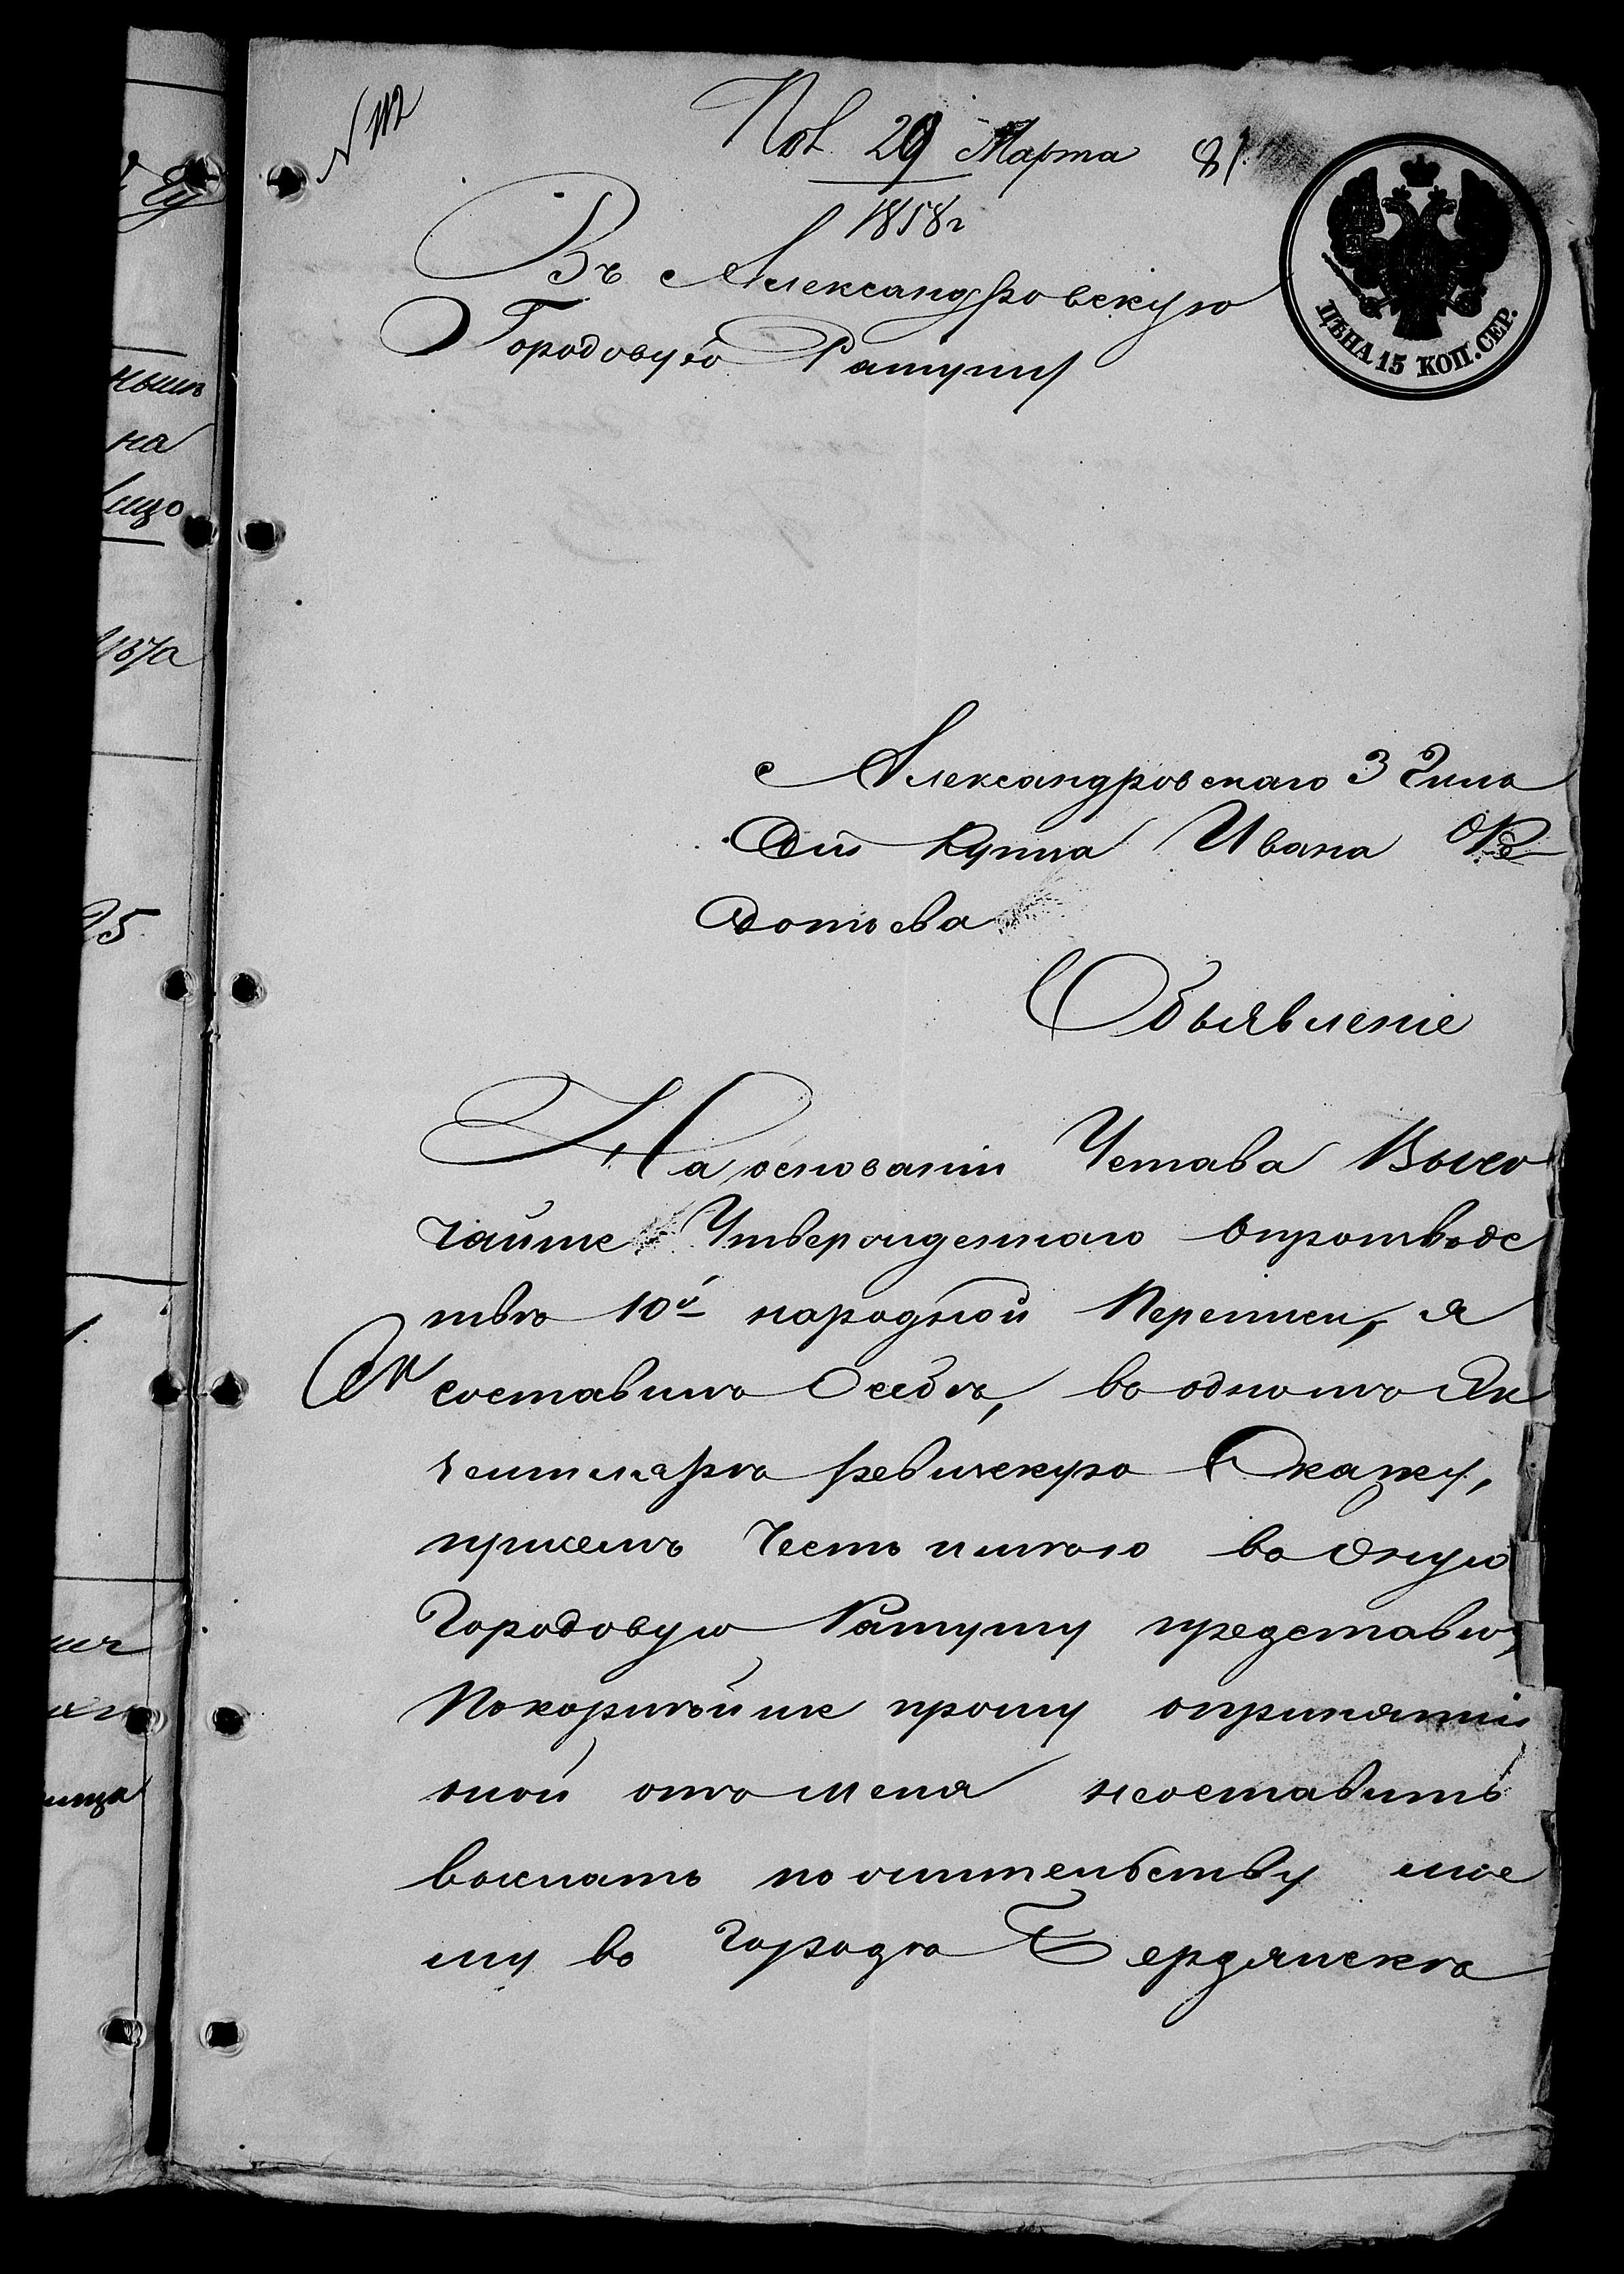 Пол. 29 Марта
1858 г
81
ЦѢНА 15 КОП. СЕР.
Въ Александровскую
Городовую Ратушу
Александровскаго 3 Гиль
діи Купца Ивана Фе
дотьева
Объявленіе
На основаніи Устава Высо
чайше Утвержденнаго опроизводс
твѣ 10й народной Переписи, я
составилъ Особѣ, въ одномъ Эк
земплярѣ ревизскую Сказку,
присемъ Честь имѣю въ Оную
Городовую Ратушу представить
Покорнѣйше прошу опринятіи
оной отъ меня неоставить
выслать пожительству мое
му въ Городѣ Бердянскѣ